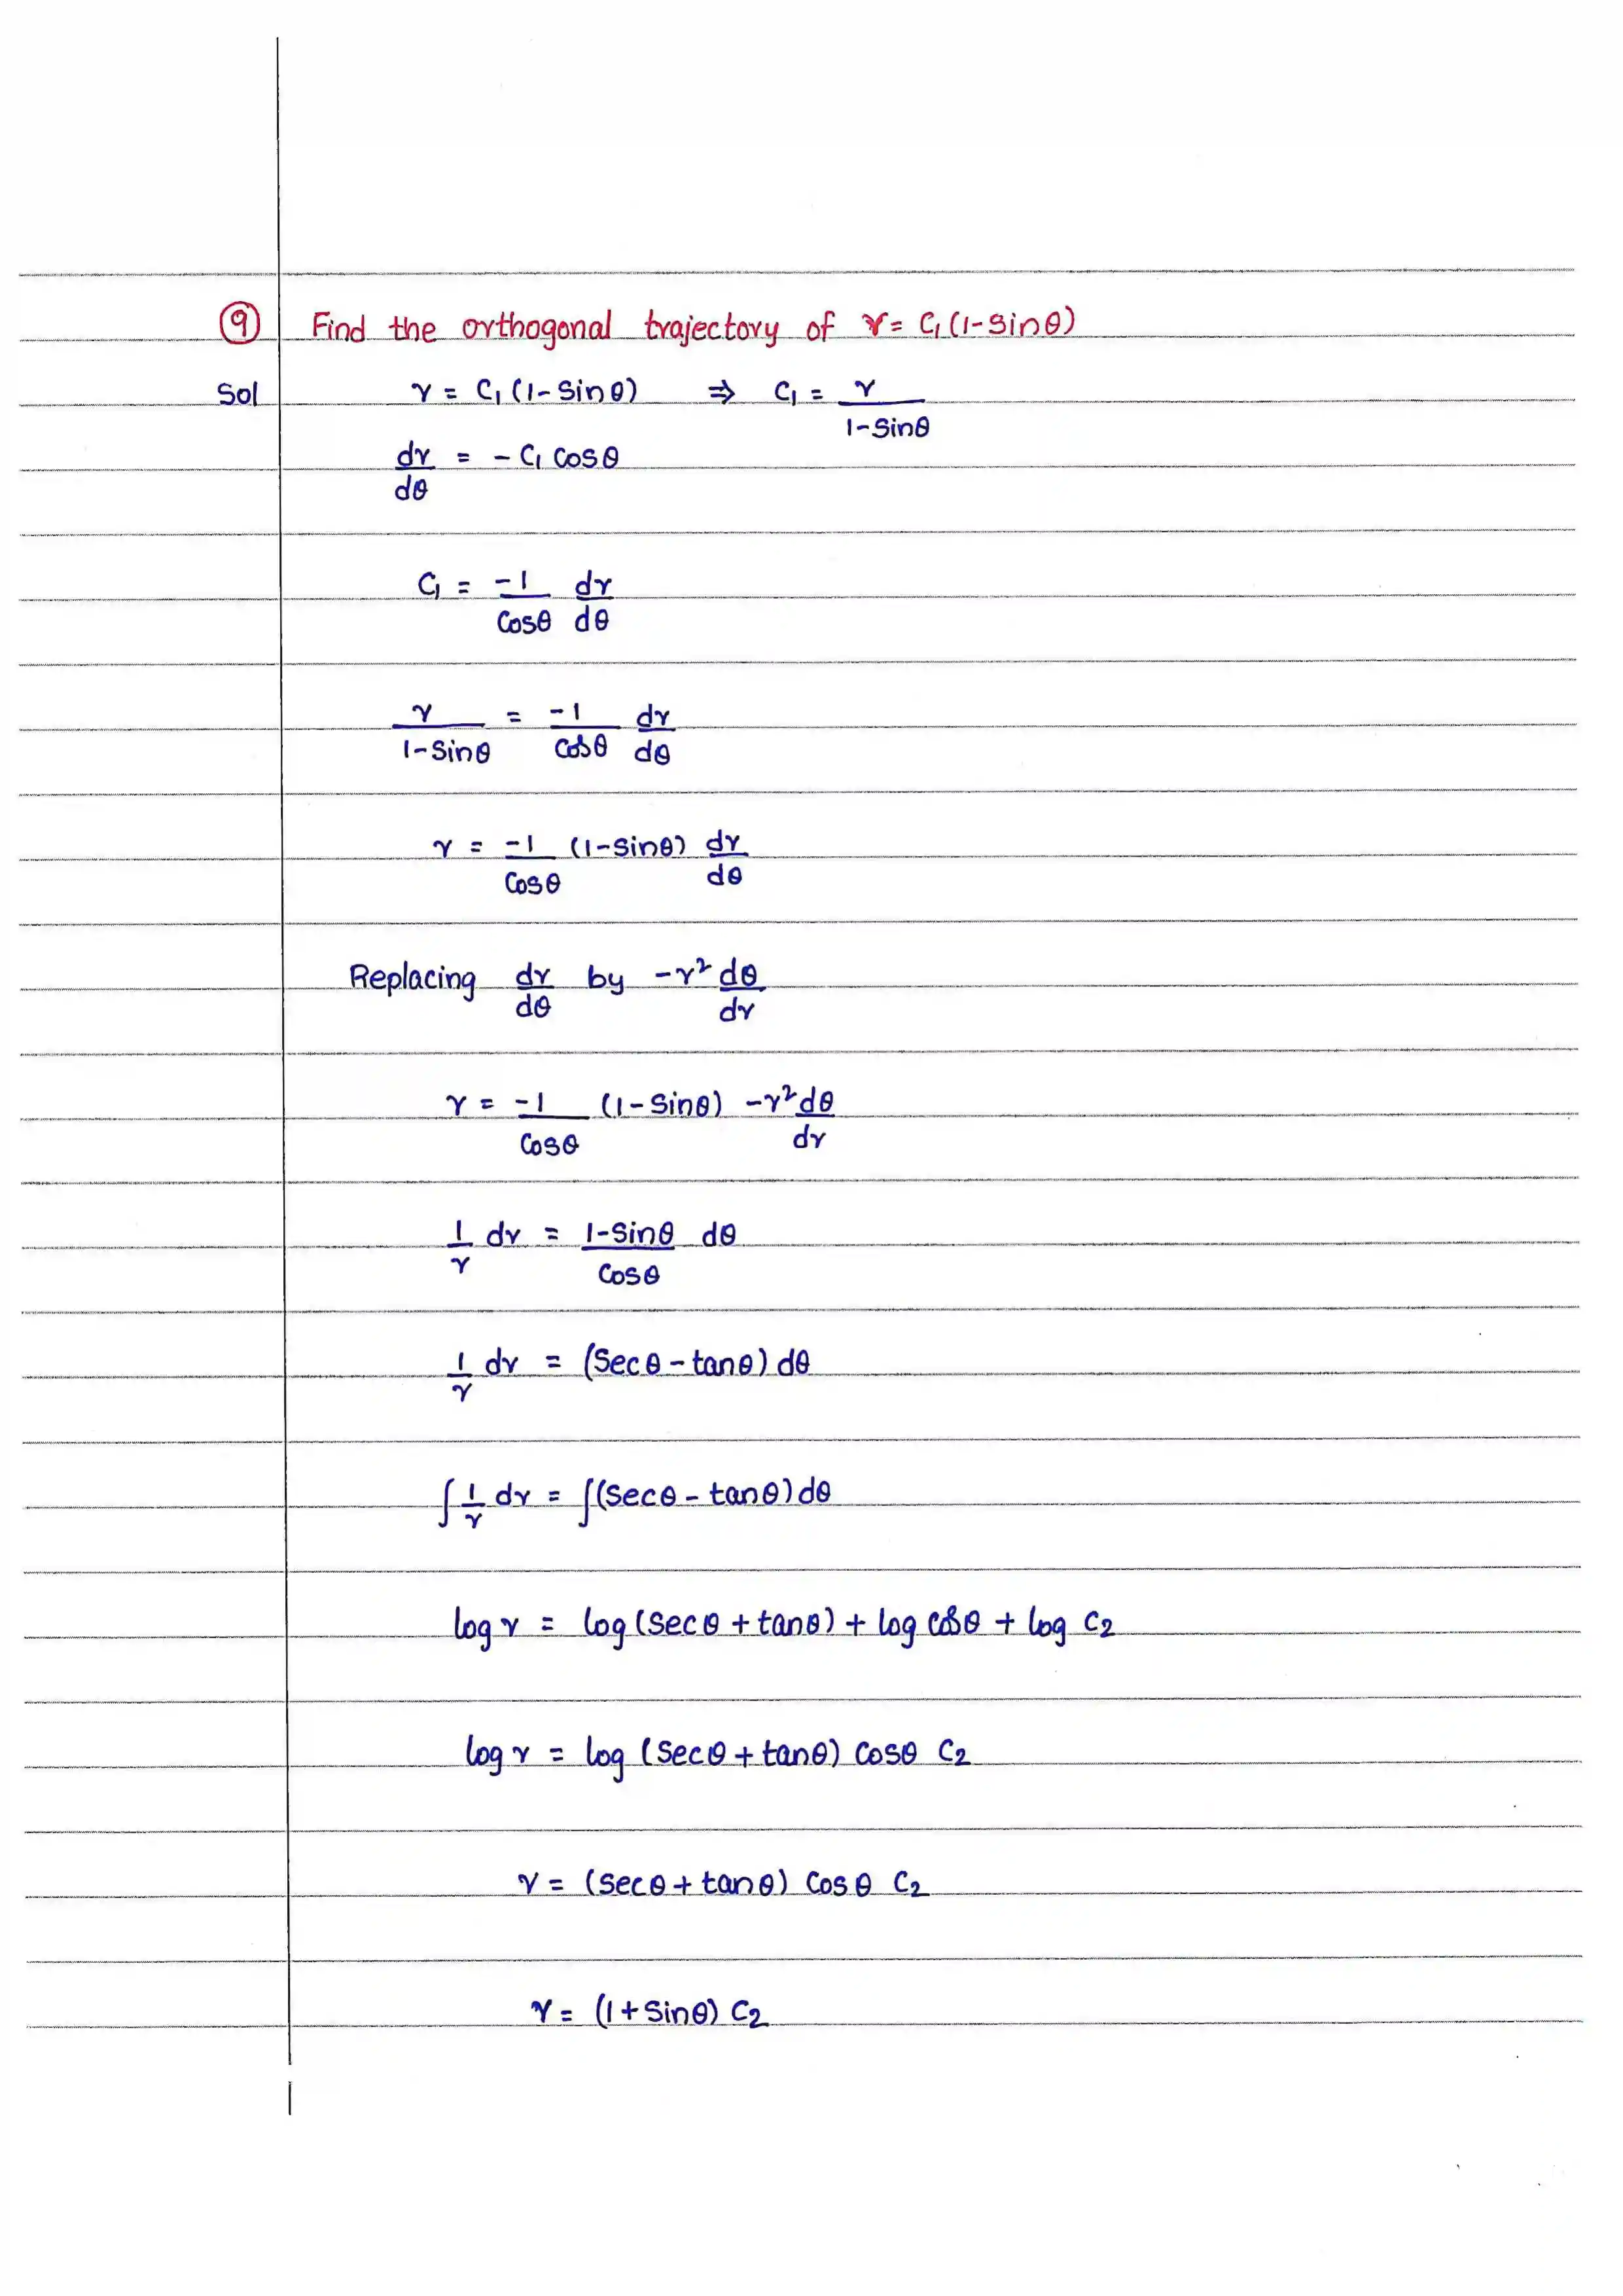 ⑨ Find the orthogonal trajectory of r = C₁(1-Sinθ)
Sol r = C₁(1-Sinθ) ⇒ C₁ = r / (1-Sinθ)
dr/dθ = - C₁ Cosθ
C₁ = -1/Cosθ dr/dθ
r/(1-Sinθ) = -1/Cosθ dr/dθ
r = -1/Cosθ (1-Sinθ) dr/dθ
Replacing dr/dθ by -r² dθ/dr
r = -1/Cosθ (1-Sinθ) -r² dθ/dr
1/r dr = (1-Sinθ)/Cosθ dθ
1/r dr = (Secθ - tanθ) dθ
∫ 1/r dr = ∫(Secθ - tanθ) dθ
log r = log (Secθ + tanθ) + log Cosθ + log C₂
log r = log (Secθ + tanθ) Cosθ C₂
r = (Secθ + tanθ) Cosθ C₂
r = (1 + Sinθ) C₂